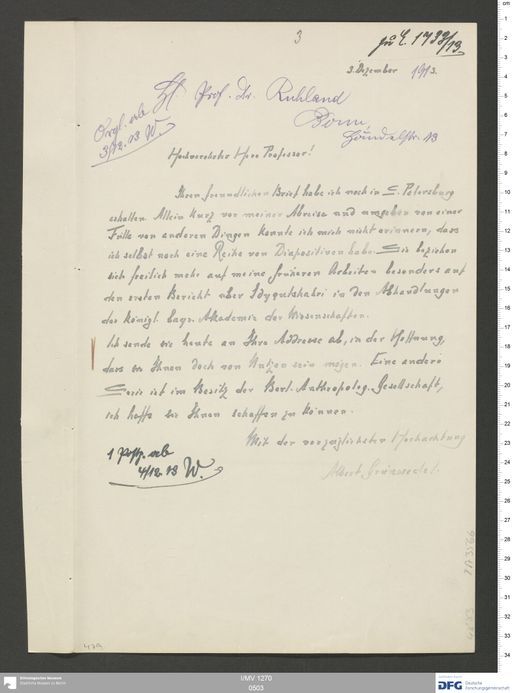 3
zu E. 1738/13
3. Dezember 1913.
Hr. Prof. Dr. Ruhland
Bonn,
Händelstr. 13
Orgl. ab
3/12. 13 W.
Hochverehrter Herr Professor!
Ihren freundlichen Brief habe ich noch in S. Petersburg
erhalten. Allein kurz vor meiner Abreise und umgeben von einer
Fülle von anderen Dingen konnte ich mich nicht erinnern, dass
ich selbst noch eine Reihe von Diapositiven habe. Sie beziehen
sich freilich mehr auf meine früheren Arbeiten besonders auf
den ersten Bericht über Idyqutshahri in den Abhandlungen
der Königl. bayr. Akademie der Wissenschaften.
Ich sende sie heute an Ihre Addresse ab, in der Hoffnung,
dass sie Ihnen doch von Nutzen sein mögen. Eine andere
Serie ist im Besitz der Berl. Anthropolog. Gesellschaft,
ich hoffe sie Ihnen schaffen zu können.
Mit der vorzüglichsten Hochachtung
Albert Grünwedel.
1 Postp. ab
4/12. 13 W.
479
Ethnologisches Museum
Staatliche Museen zu Berlin
I/MV 1270
0503
DFG Deutsche
Forschungsgemeinschaft
cm
1
2
3
4
5
6
7
8
9
10
11
12
13
14
15
16
17
18
19
20
21
22
23
24
25
26
27
28
29
30
31
32
33
34